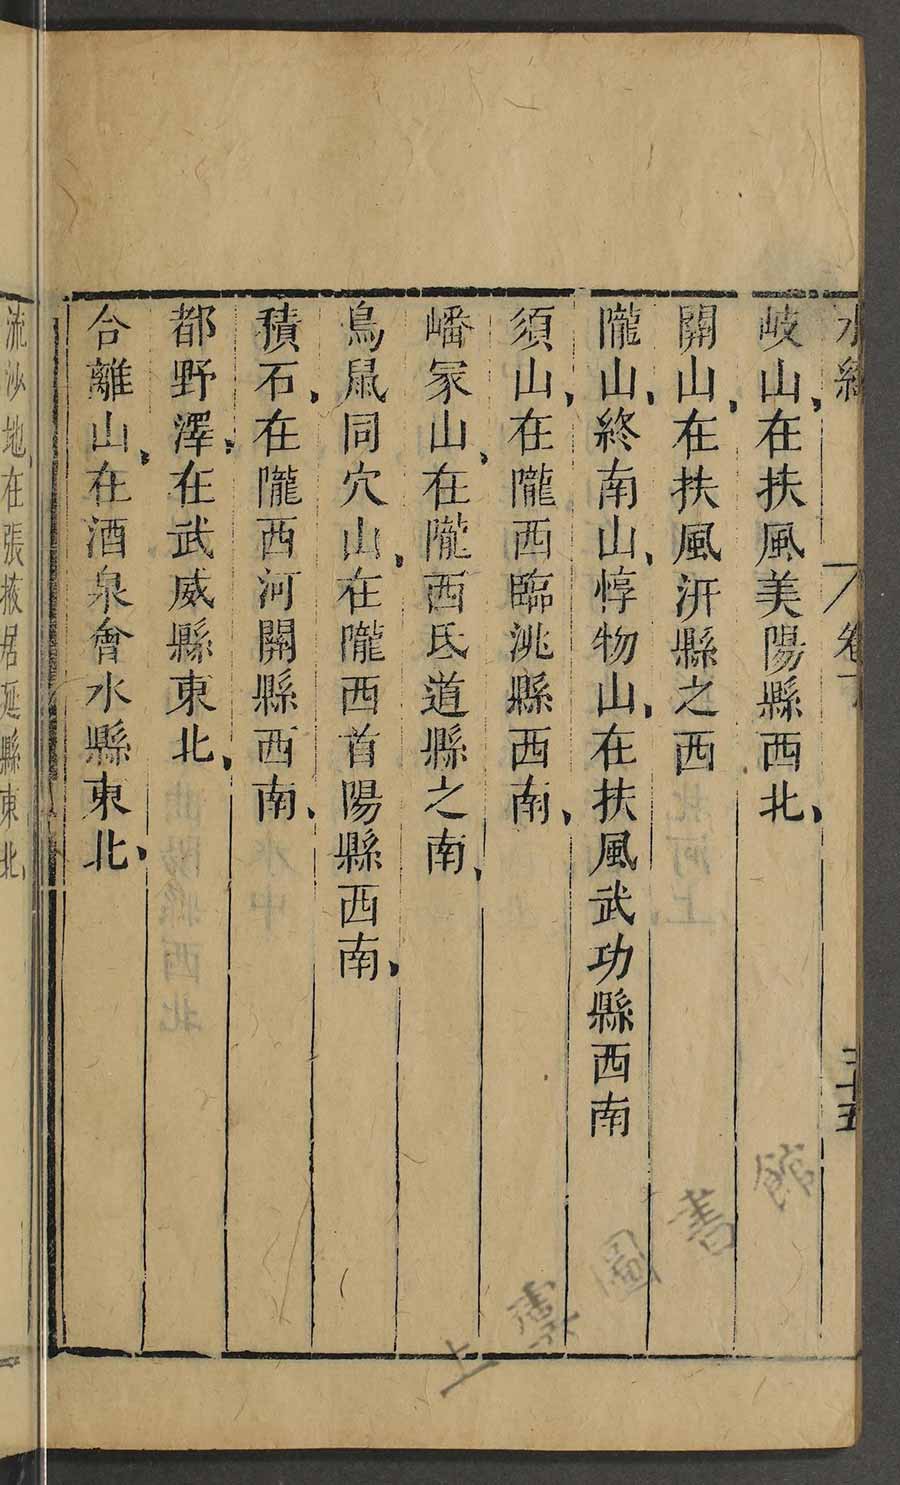 水經 卷下 三十五
岐山在扶風美陽縣西北
關山在扶風汧縣之西
隴山終南山惇物山在扶風武功縣西南
須山在隴西臨洮縣西南
嶓冢山在隴西氐道縣之南
鳥鼠同穴山在隴西首陽縣西南
積石在隴西河關縣西南
都野澤在武威縣東北
合離山在酒泉會水縣東北
流沙地在張掖居延縣東北